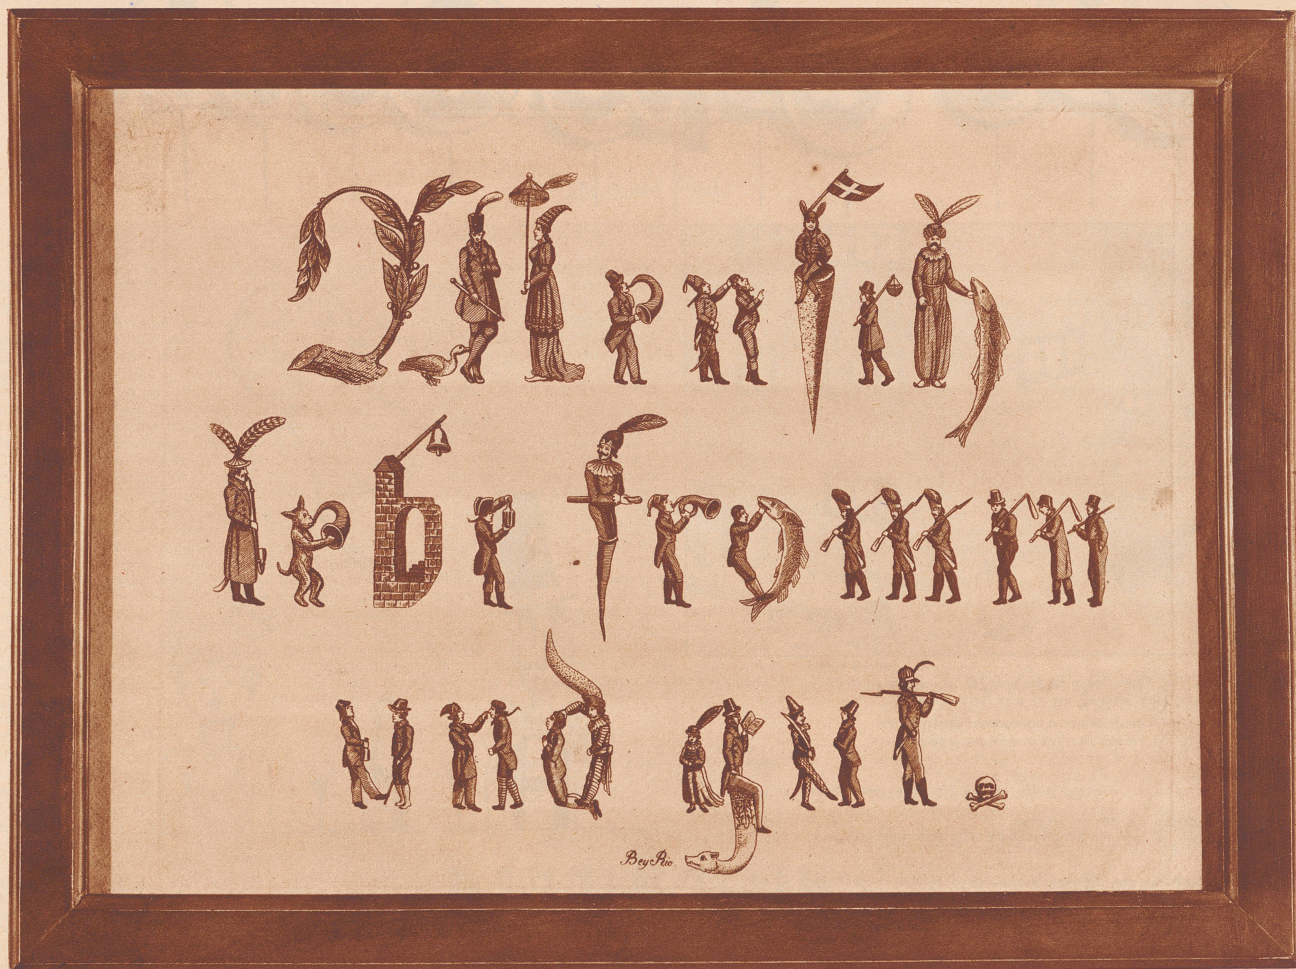 Menſch
lebe fromm
und gut.
Bey Rio